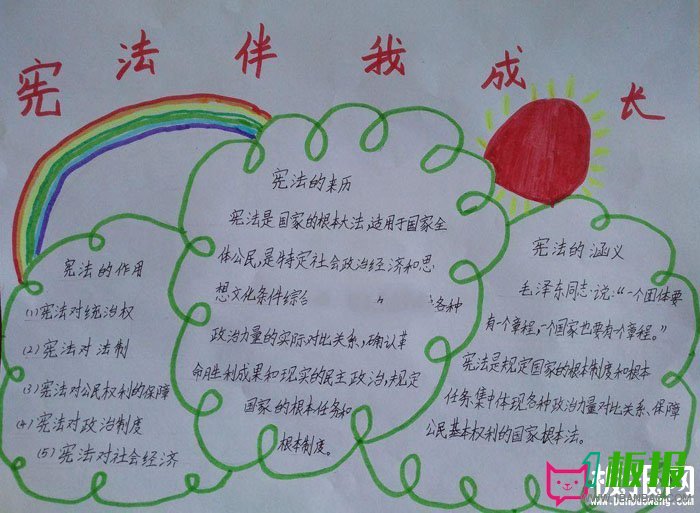 宪法伴我成长
宪法的来历
宪法是国家的根本大法,适用于国家全
体公民,是特定社会政治经济和思
想文化条件综合
各种
政治力量的实际对比关系,确认革
命胜利成果和现实的民主政治,规定
国家的根本任务和
根本制度。
宪法的作用
(1)宪法对统治权
(2)宪法对法制
(3)宪法对公民权利的保障
(4)宪法对政治制度
(5)宪法对社会经济
宪法的涵义
毛泽东同志说:“一个团体要
有一个章程,一个国家也要有个章程。”
宪法是规定国家的根本制度和根本
任务.集中体现各种政治力量对比关系、保障
公民基本权利的国家根本法。
板报